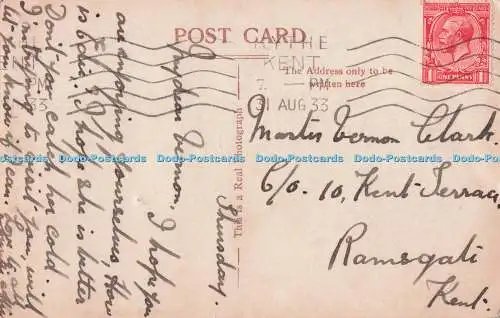 POST CARD
HYTHE
KENT
PM
31 AUG 33
The Address only to be
written here
ONE PENNY
This is a Real Photograph
Thursday.
My dear Vernon, I hope you
are enjoying yourselves. How
is I hope she is better
Don't you catch her cold
I'm trying to you, will
let you know if I can. Love to all
Master Vernon Clark.
C/o. 10, Kent Terrace,
Ramsgate
Kent.
Dodo-Postcards Dodo-Postcards Dodo-Postcards Dodo-Postcards Dodo-Postcards Dodo-Postcards